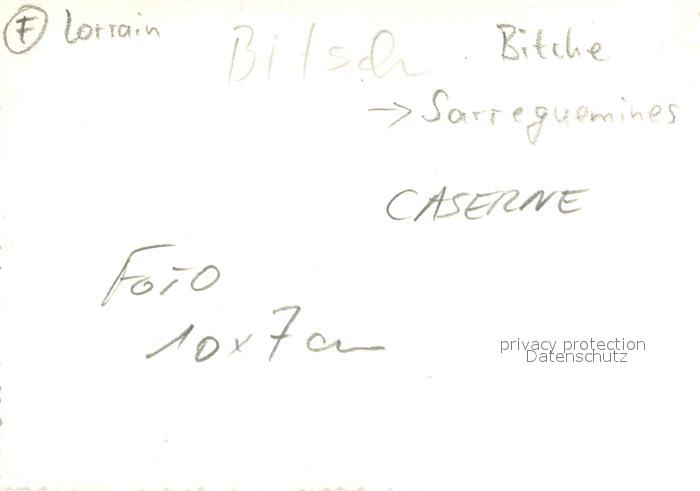 F Lorrain Bitsch Bitche
→ Sarreguemines
CASERNE
FOTO
10x7cm
privacy protection
Datenschutz